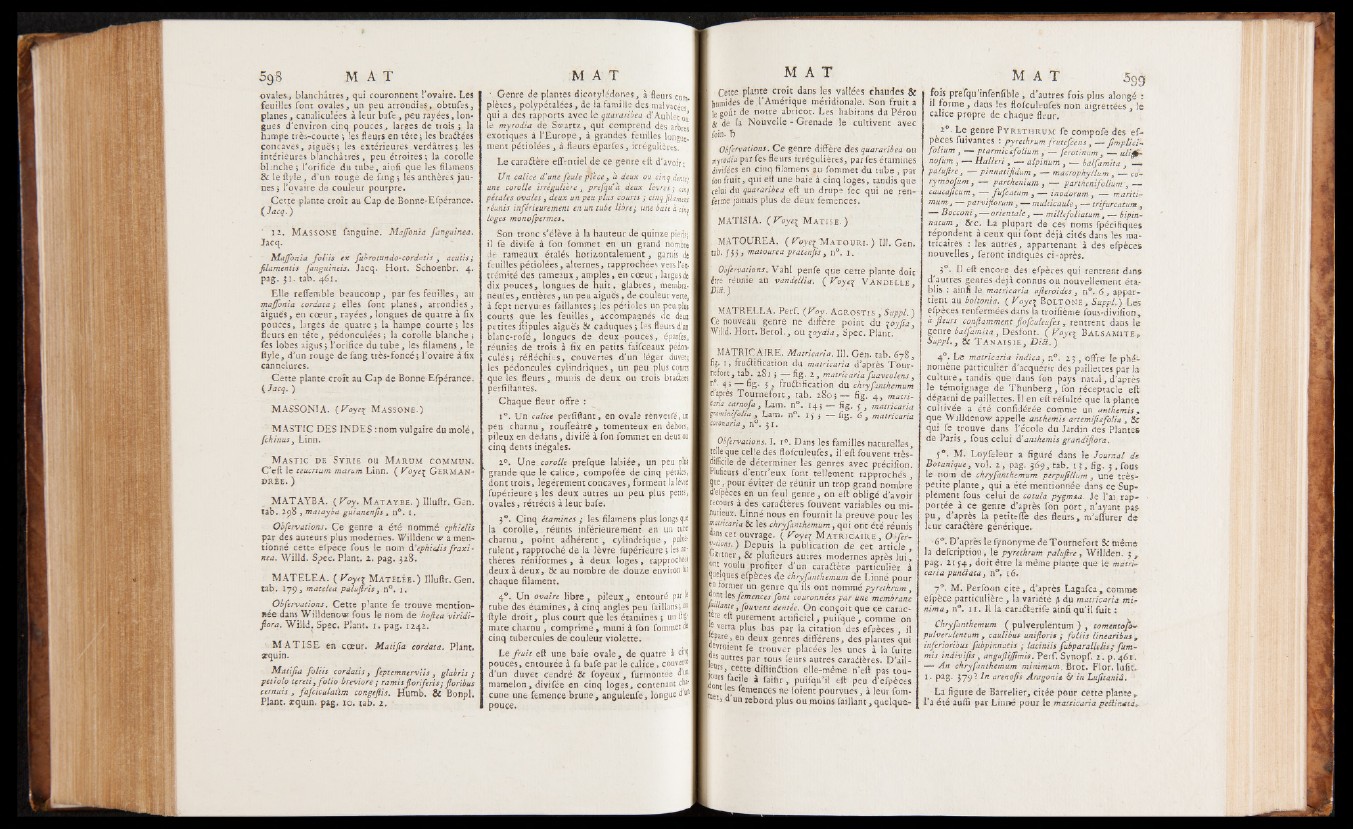 598 M A T
ovales, blanchâtres, qui couronnent l'ovaire. Les
feuilles font ovales, un peu arrondies, obtufes,
planes, canaliculées à leur bafe, peu rayées, lon-
gues d'environ cinq pouces, larges de trois; la
hampe très-courte; les fleurs en tête; les bractées
concaves, aiguës; les extérieures verdâtres; les
intérieures blanchâtres, peu étroites; la corolle
blanche; l'orifice du tube, ainfi que les filamens
& le ftyle, d'un rouge de fang; les anthères jau-
nes; l'ovaire de couleur pourpre.
Cette plante croît au Cap de Bonne-Efpérance.
(Jacq.)
12. MASSONE fanguine. Maffonia fanguinea.
Jacq.
Maffonia foliis ex fubrotundo-cordatis, acutis;
filamentis fanguineis. Jacq. Hort. Schoenbr. 4.
pag. 31. tab. 461.
Elle reffemble beaucoup, par fes feuilles, au
maffonia cordata; elles font planes, arrondies,
aiguës, en cœur, rayées, longues de quatre à fix
pouces, larges de quatre; la hampe courte; les
fleurs en tête, pédonculées; la corolle blanche;
fes lobes aigus; l'orifice du tube, les filamens, le
ftyle, d'un rouge de fang très-foncé; l'ovaire à fix
cannelures.
Cette plante croît au Cap de Bonne Efpérance.
(Jacq.)
MASSONIA. (Voyez MASSONE.)
MASTIC DES INDES: nom vulgaire du molé,
fchinus, Linn.
MASTIC DE SYRIE ou MARUM COMMUN.
C'eft le teucrium marum Linn. (Voyez GERMAN-
DRÉE.)
MATAYBA. (Voy. MATAYBE.) Illuftr. Gen.
tab. 298, matayba guianenfis, n°. 1.
Obfervations. Ce genre a été nommé ephielis
par des auteurs plus modernes. Willdenow a men-
tionné cette efpèce fous le nom d'ephielis fraxi-
nea. Willd. Spec. Plant. 2. pag. 328.
MATELEA. (Voyez MATELÉE.) Illuftr. Gen.
tab. 179, matelea paluftris, n°. 1.
Obfervations. Cette plante fe trouve mention-
née dans Willdenow fous le nom de hoftea viridi-
flora. Willd. Spec. Plant. 1. pag. 1242.
MATISE en cœur. Matifia cordata. Plant.
æquin.
Matifia foliis cordatis, feptemnerviis, glabris;
petiolo tereti, folio breviore; ramis floriferis; floribus
ternais, fafciculatim congeftis. Humb. & Bonpl.
Plant. æquin. pag. 10. tab. 2.
M A T
Genre de plantes dicotylédones, à fleurs com-
plètes, polypétalées, de la famille des malvacées,
qui a des rapports avec le quararibea d'Aublet ou
le myrodia de Swartz, qui comprend des arbres
exotiques à l'Europe, à grandes feuilles longue-
ment pétiolées, à fleurs éparfes, irrégulières.
Le caractère effentiel de ce genre eft d'avoir:
Un calice d'une feule pièce, à deux ou cinq dents;
une corolle irrégulière, prefqu'à deux lèvres; cinq
pétales ovales, deux un peu plus courts; cinq filamens
réunis inférieurement en un tube libre; une baie à cinq
loges monofpermes.
Son tronc s'élève à la hauteur de quinze pieds;
il fe divife à fon fommet en un grand nombre
de rameaux étalés horizontalement, garnis de
feuilles pétiolées, alternes, rapprochées vers l'ex-
trémité des rameaux, amples, en cœur, larges de
dix pouces, longues de huit, glabres, membra-
neufes, entières, un peu aiguës, de couleur verte,
à fept nervures faillantes; les pétioles un peu plus
courts que les feuilles, accompagnés de deux
petites ftipules aiguës & caduques; les fleurs d'un
blanc-rofé, longues de deux pouces, éparfes,
réunies de trois à fix en petits faifceaux pédon-
culés; réfléchies, couvertes d'un léger duvet;
les pédoncules cylindriques, un peu plus courts
que les fleurs, munis de deux ou trois bractées
perfiftantes.
Chaque fleur offre:
1°. Un calice perfiftant, en ovale renverfé, un
peu charnu, rouffeâtre, tomenteux en dehors,
pileux en dedans, divifé à fon fommet en deux ou
cinq dents inégales.
2°. Une corolle prefque labiée, un peu plus
grande que le calice, compofée de cinq pétales,
dont trois, légérement concaves, forment la lèvre
fupérieure; les deux autres un peu plus petits,
ovales, rétrécis à leur bafe.
3°. Cinq étamines; les filamens plus longs que
la corolle, réunis inférieurement en un tube
charnu, point adhérent, cylindrique, pulvé-
rulent, rapproché de la lèvre fupérieure; les an-
thères réniformes, à deux loges, rapprochées
deux à deux, & au nombre de douze environ fur
chaque filament.
4°. Un ovaire libre, pileux, entouré par le
tube des étamines, à cinq angles peu faillans; un
ftyle droit, plus court que les étamines; un ftig-
mate charnu, comprimé, muni à fon fommet de
cinq tubercules de couleur violette.
Le fruit eft une baie ovale, de quatre à cinq
pouces, entourée à fa bafe par le calice, couverte
d'un duvet cendré & foyeux, furmontée d'un
mamelon, divifée en cinq loges, contenant cha-
cune une femence brune, anguleufe, longue d'un
pouce.
M A T
Cette plante croît dans les vallées chaudes &
humides de l'Amérique méridionale. Son fruit a
le goût de notre abricot. Les habitans du Pérou
& de la Nouvelle-Grenade le cultivent avec
foin. ♄
Obfervations. Ce genre diffère des quararibea ou
myrodia par fes fleurs irrégulières, par fes étamines
divifées en cinq filamens au fommet du tube, par
fon fruit, qui eft une baie à cinq loges, tandis que
celui du quararibea eft un drupe fec qui ne ren-
ferme jamais plus de deux femences.
MATISIA. (Voyez MATISE.)
MATOUREA. (Voyez MATOURI.) Ill. Gen.
tab. 535, matourea pratenfis, n°. 1.
Obfervations. Vahl penfe que cette plante doit
être réunie au vandellia. (Voyez VANDELLE,
Dict.)
MATRELLA. Perf. (Voy. AGROSTIS, Suppl.)
Ce nouveau genre ne diffère point du zoyfia,
Willd. Hort. Berol., ou zoydia, Spec. Plant.
MATRICAIRE. Matricaria. Ill. Gen. tab. 678,
fig. 1, fructification du matricaria d'après Tour-
nefort, tab. 281; — fig. 2, matricaria fuaveolens,
n°. 4; — fig. 3, fructification du chryfanthemum
d'après Tournefort, tab. 280; — fig. 4, matri-
caria carnofa, Lam. n°. 14; — fig. 5, matricaria
graminifolia, Lam. n°. 15; — fig. 6, matricaria
coronaria, n°. 31.
Obfervations. I. 1°. Dans les familles naturelles,
telle que celle des flofculeufes, il eft fouvent très-
difficile de déterminer les genres avec précifion.
Plufieurs d'entr'eux font tellement rapprochés,
que, pour éviter de réunir un trop grand nombre
d'efpèces en un feul genre, on eft obligé d'avoir
recours à des caractères fouvent variables ou mi-
nutieux. Linné nous en fournit la preuve pour les
matricaria & les chryfanthemum, qui ont été réunis
dans cet ouvrage. (Voyez MATRICAIRE, Obfer-
vations.) Depuis la publication de cet article,
Gærtner, & plufieurs autres modernes après lui,
ont voulu profiter d'un caractère particulier à
quelques efpèces de chryfanthemum de Linné pour
en former un genre qu'ils ont nommé pyrethrum,
dont les femences font couronnées par une membrane
faillante, fouvent dentée. On conçoit que ce carac-
tère eft purement artificiel, puifque, comme on
le verra plus bas par la citation des efpèces, il
fépare, en deux genres différens, des plantes qui
devroient fe trouver placées les unes à la fuite
des autres par tous leurs autres caractères. D'ail-
leurs, cette diftinction elle-même n'eft pas tou-
jours facile à faifir, puifqu'il eft peu d'efpèces
dont les femences ne foient pourvues, à leur fom-
met, d'un rebord plus ou moins faillant, quelque-
M A T 599
fois prefqu'infenfible, d'autres fois plus alongé:
il forme, dans les flofculeufes non aigrettées, le
calice propre de chaque fleur.
2°. Le genre PYRETHRUM fe compofe des ef-
pèces fuivantes: pyrethrum frutefcens, — fimplici-
folium, — ptarmicafolium, — ferotinum, — uligi-
nofum, — Halleri, — alpinum, — balfamita, —
paluftre, — pinnatifidum, — macrophyllum, — co-
rymbofum, — parthenium, — parthenifolium, —
caucaficum, — fufcatum, — inodorum, — mariti-
mum, — parviflorum, — multicaule, — trifurcatum,
— Bocconi, — orientale, — millefoliatum, — bipin-
natum, &c. La plupart de ces noms fpécifiques
répondent à ceux qui font déjà cités dans les ma-
tricaires: les autres, appartenant à des efpèces
nouvelles, feront indiqués ci-après.
3°. Il eft encore des efpèces qui rentrent dans
d'autres genres déjà connus ou nouvellement éta-
blis: ainfi le matricaria afteroides, n°. 6, appar-
tient au boltonia. (Voyez BOLTONE, Suppl.) Les
efpèces renfermées dans la troifième fous-divifion,
à fleurs conftamment flofculeufes, rentrent dans le
genre balfamita, Desfont. (Voyez BALSAMITE,
Suppl., & TANAISIE, Dict.)
4°. Le matricaria indica, n°. 23, offre le phé-
nomène particulier d'acquérir des paillettes par la
culture, tandis que dans fon pays natal, d'après
le témoignage de Thunberg, fon réceptacle eft
dégarni de paillettes. Il en eft réfulté que la plante
cultivée a été confidérée comme un anthemis,
que Willdenow appelle anthemis artemifiæfolia, &
qui fe trouve dans l'école du Jardin des Plantes
de Paris, fous celui d'anthemis grandiflora.
5°. M. Loyfeleur a figuré dans le Journal de
Botanique, vol. 2, pag. 369, tab. 13, fig. 3, fous
le nom de chryfanthemum perpufillum, une très-
petite plante, qui a été mentionnée dans ce Sup-
plément fous celui de cotula pygmæa. Je l'ai rap-
portée à ce genre d'après fon port, n'ayant pas
pu, d'après la petiteffe des fleurs, m'affurer de
leur caractère générique.
6°. D'après le fynonyme de Tournefort & même
la defcription, le pyrethrum paluftre, Willden. 3,
pag. 2154, doit être la même plante que le matri-
caria punctata, n°. 16.
7°. M. Perfoon cite, d'après Lagafca, comme
efpèce particulière, la variété β du matricaria mi-
nima, n°. 11. Il la caractérife ainfi qu'il fuit:
Chryfanthemum (pulverulentum), tomentofo-
pulverulentum, caulibus unifloris; foliis linearibus,
inferioribus fubpinnatis; laciniis fubparallelis; fum-
mis indivifis, anguftiffimis. Perf. Synopf. 2. p. 461.
— An chryfanthemum minimum? Brot. Flor. lufit.
1. pag. 379? In arenofis Aragoniæ & in Lufitaniâ.
La figure de Barrelier, citée pour cette plante,
l'a été auffi par Linné pour le matricaria pectinata.